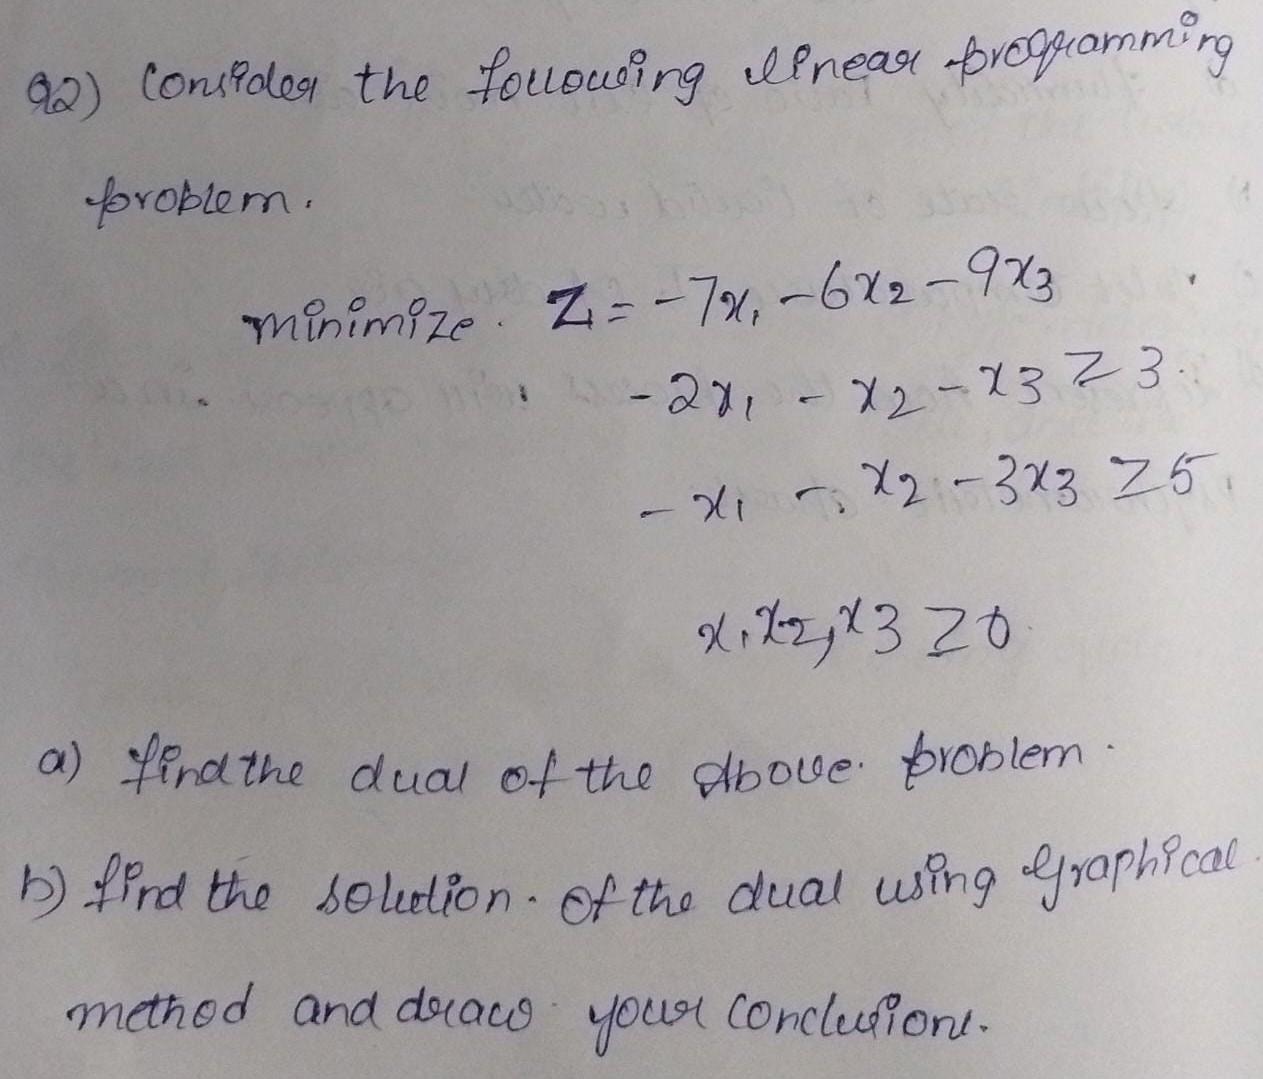 Q2) Consider the following linear programming
problem.
minimize. Z = -7x₁ - 6x₂ - 9x₃
-2x₁ - x₂ - x₃ ≥ 3.
-x₁ - x₂ - 3x₃ ≥ 5
x₁ x₂, x₃ ≥ 0
a) find the dual of the above. problem.
b) find the solution. of the dual using graphical
method and draw your conclusions.